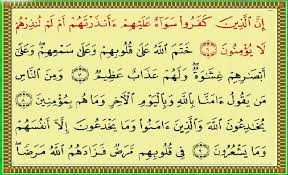 إِنَّ ٱلَّذِينَ كَفَرُوا۟ سَوَآءٌ عَلَيْهِمْ ءَأَنذَرْتَهُمْ أَمْ لَمْ تُنذِرْهُمْ
لَا يُؤْمِنُونَ ۝٦ خَتَمَ ٱللَّهُ عَلَىٰ قُلُوبِهِمْ وَعَلَىٰ سَمْعِهِمْ ۖ وَعَلَىٰٓ
أَبْصَـٰرِهِمْ غِشَـٰوَةٌ ۖ وَلَهُمْ عَذَابٌ عَظِيمٌ ۝٧ وَمِنَ ٱلنَّاسِ
مَن يَقُولُ ءَامَنَّا بِٱللَّهِ وَبِٱلْيَوْمِ ٱلْـَٔاخِرِ وَمَا هُم بِمُؤْمِنِينَ ۝٨
يُخَـٰدِعُونَ ٱللَّهَ وَٱلَّذِينَ ءَامَنُوا۟ وَمَا يَخْدَعُونَ إِلَّآ أَنفُسَهُمْ
وَمَا يَشْعُرُونَ ۝٩ فِى قُلُوبِهِم مَّرَضٌ فَزَادَهُمُ ٱللَّهُ مَرَضًا ۖ